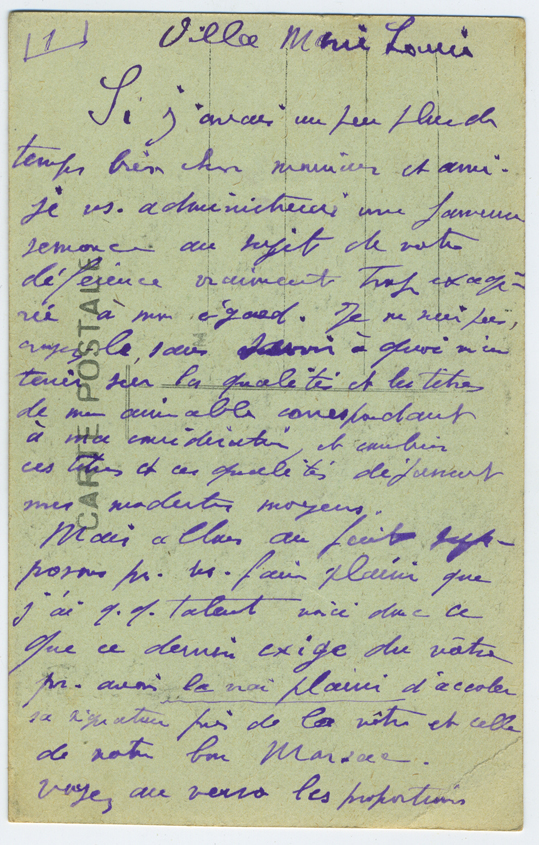 1
Villa Marie Louise
Si j'avais un peu plus de
temps bien cher monsieur et ami.
je vs. administrerais une fameuse
semonce au sujet de votre
déférence vraiment trop exagé=
rée à mon égard. Je ne suis pas,
, sans savoir à quoi m'en
tenir sur la qualités et les titres
de mon aimable correspondant
à ma considération, et combien
ces titres et ces qualités dépassent
mes modestes moyens.
Mais allons au fait sup-
posons pr. vs. faire plaisir que
j'ai q.q. talent voici donc ce
que ce dernier exige du vôtre
pr. avoir le vrai plaisir d'accoler
sa signature près de la vôtre et celle
de notre bon Marsac.
Voyez au verso les proportions
CARTE POSTALE